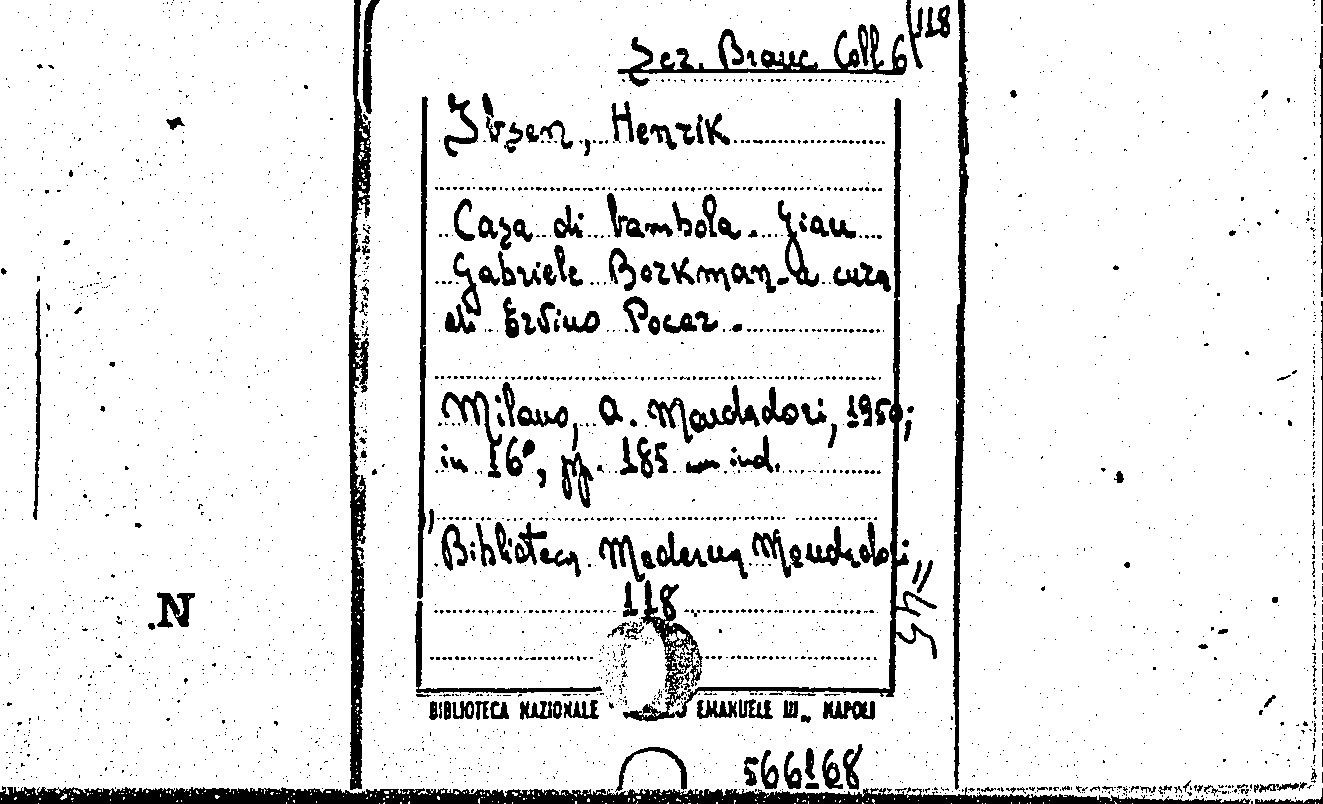 Sez. Branc. Coll 6/118
Ibsen, Henrik
Casa di bambola. Gian
Gabriele Borkman - a cura
di Ervino Pocar.
Milano, A. Mondadori, 1950;
in 16°, pp. 185 ind.
"Biblioteca Moderna Mondadori,
118
BIBLIOTECA NAZIONALE EMANUELE III„ NAPOLI
566168
.N